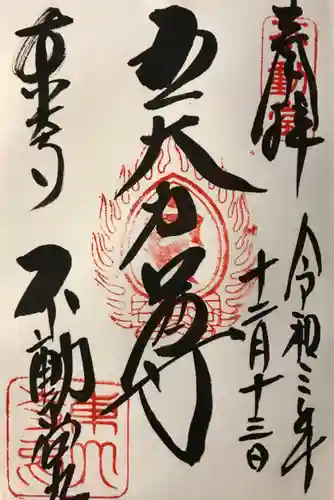 奉拝
令和三年
十二月十三日
五大力菩薩
東寺
不動堂